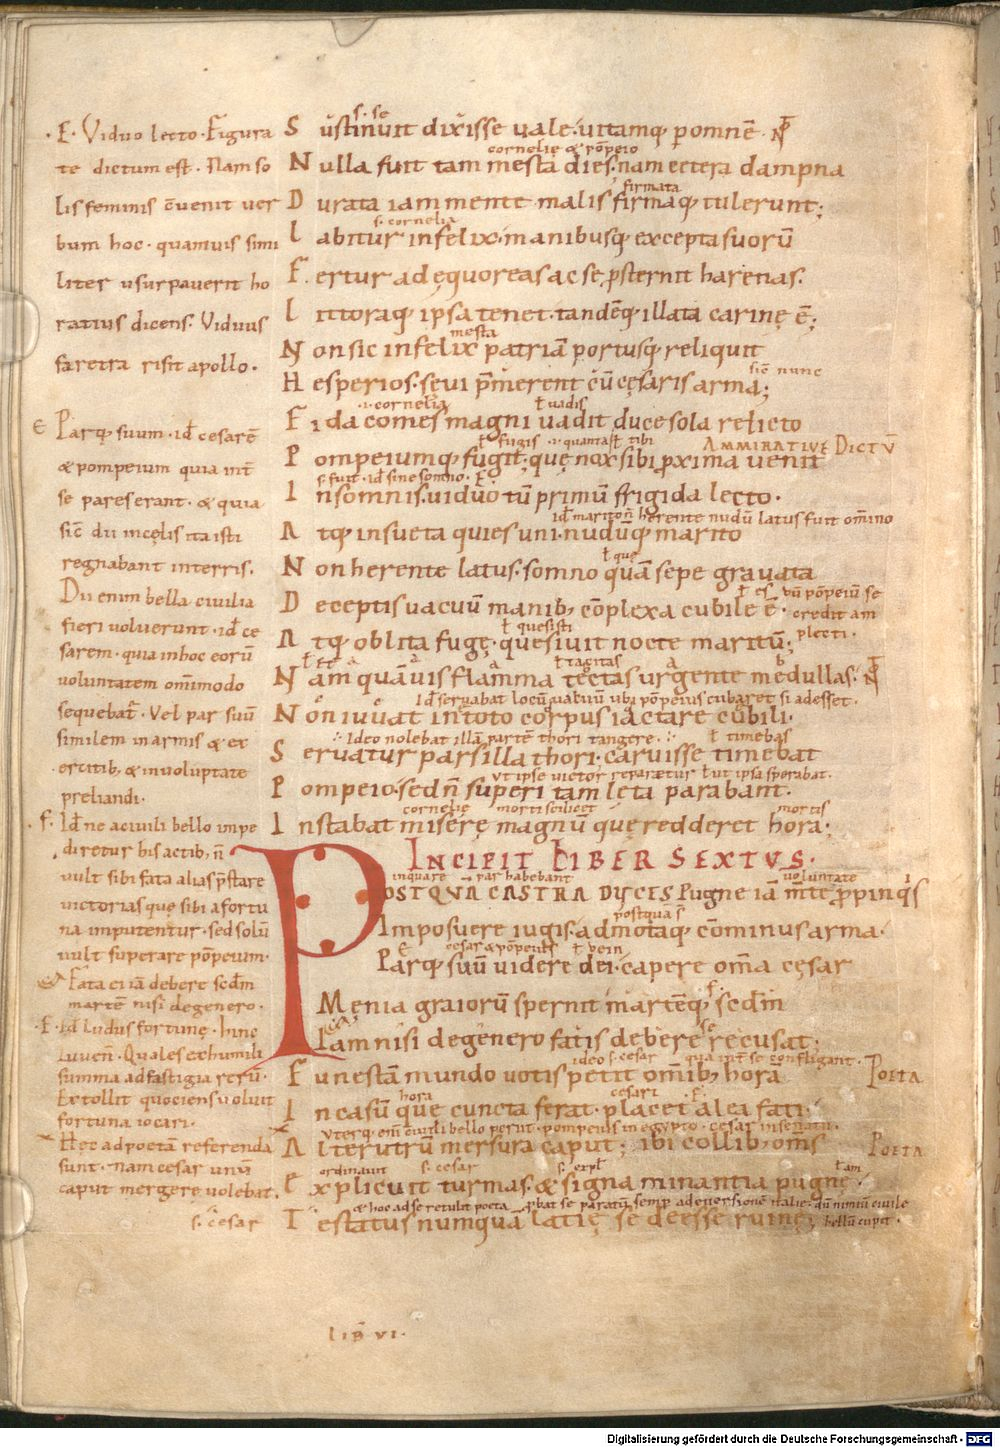 · E · Viduo lecto · Figura
te dictum est · Nam so
lis feminis c̄uenit uer
bum hoc · quamuis simi
liter usurpauerit ho
ratius dicens · Viduus
faretra risit apollo ·
Є Parq; suum · id ̄ cesarē
& pompeium quia int̄
se pares erant · & quia
sic̄ dii in cęlis ita isti
regnabant in terris.
Dii enim bella ciuilia
fieri uoluerunt · id ̄ ce
sarem · quia in hoc eorū
uoluntatem om̄imodo
sequebat̄ · Vel par suū
similem in armis & ex
ercitib; & in uoluptate
preliandi ·
· F · Id ̄ ne a ciuili bello impe
diretur his actib; n̄
uult sibi fata alias p̄stare
uictorias quę sibi a fortu
na imputentur · sed solū
uult superare pōpeium ·
Fata ei iā debent secd̄m
martē nisi degenero ·
· E · Id ̄ ludus fortunę · hinc
iuueñ · Quales ex humili
summa ad fastigia rerū ·
Extollit quociens uoluit
fortuna iocari ·
Hec ad poetam referenda
sunt · nam cesar unū
caput mergere uolebat ·
s. cesar
s. se
S ustinuit dixisse uale · uitamq; p omnē ·
cornelię & pōpeio
N ulla fuit tam mesta dies; nam cetera dampna
firmata
D urata iam mente malis firmaq; tulerunt;
s. cornelia
L abitur infelix · manibusq; excepta suorū
F ertur ad ęquoreas ac se p̄sternit harenas.
L ittoraq; ipsa tenet · tandēq; illata carinę ē;
mesta
N on sic infelix patriā portusq; reliquit
sic̄ nunc
H esperios · seui p̄merent cū cęsaris arma;
·i· cornelia ł uadis
F ida comes magni uadit duce sola relicto
ł fugis ·i· quanta ł tibi AMMIRATIVE DICTV̄
P ompeiumq; fugit; quę nox sibi p̄xima uenit
s. fuit · id ̄ sine somno · E ·
I nsomnis · uiduo tū primū frigida lecto ·
id ̄ marito n̄ herente nudū latus fuit om̄ino
A tq; insueta quies uni · nudūq; marito
ł que
N on herente latus · somno quā sepe grauata
ł es dū pōpeiū se
D eceptis uacuū manib; cōplexa cubile ē · credit am
plecti ·
ł quesisti
A tq; oblita fugę · quesiuit nocte maritū;
ł tacitas
N am quāuis flamma tectas urgente medullas ·
Id ̄ seruabat locū uacuū ubi pōpeius cubaret si adesset ·
N on iuuat in toto corpus iactare cubili ·
Ideo nolebat illā partē thori tangere · ł timebas
S eruatur pars illa thori · caruisse timebat
ut ipse uictor repararetur ł ut ipsa sperabat ·
P ompeio · sed n̄ superi tam leta parabant ·
cornelię morti scilicet mortis
I nstabat miserę magnū quę redderet hora;
INCIPIT LIBER SEXTVS ·
inquare par habebant uoluntate
POSTQVĀ CASTRA DVCES Pugne iā m̄te p̄pinq̄s
postquā s
Imposuere iugis · admotaq; cōminus arma ·
Є cesar & pōpeius ł bein
Parq; suū uidere dei · capere om̄a cęsar
· F ·
Męnia graiorū spernit · martēq; secd̄m
se
Iam nisi degenero fatis debere recusat;
ideo s. cesar qua inī se confligant · POETA
F unestā mundo uotis petit om̄ib; horā
hora cesari · E ·
I n casū que cuncta ferat · placet alea fati ·
Vterq; em̄ ciuili bello perut · pompeius in egypto · cesar in senatu ·
A lterutrū mersura caput; ibi collib; om̄s POETA
ordinauit s. cesar s. expł ł am
E xplicuit turmas · & signa minantia pugnę ·
& hoc ad se retulit poeta p̄bat se paratū semp ad euersionē italie · dū nimiū ciuile
T estatus numquā latię se deesse ruinę; bellū cupit ·
lib̄ vi ·
Digitalisierung gefördert durch die Deutsche Forschungsgemeinschaft - DFG